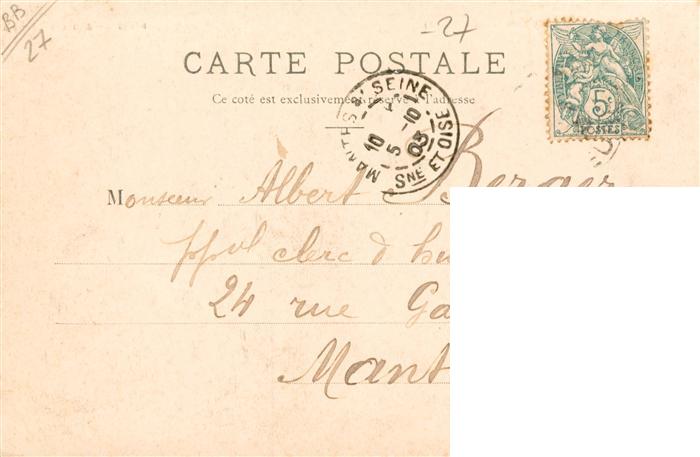 BB
27
-27
CARTE POSTALE
Ce coté est exclusivement réservé à l'adresse
MANTES S. SEINE
10
5
03
SNE ET OISE
5c
POSTES
Monsieur Albert Berger
ppal clerc d hu
24 rue Ga
Mant